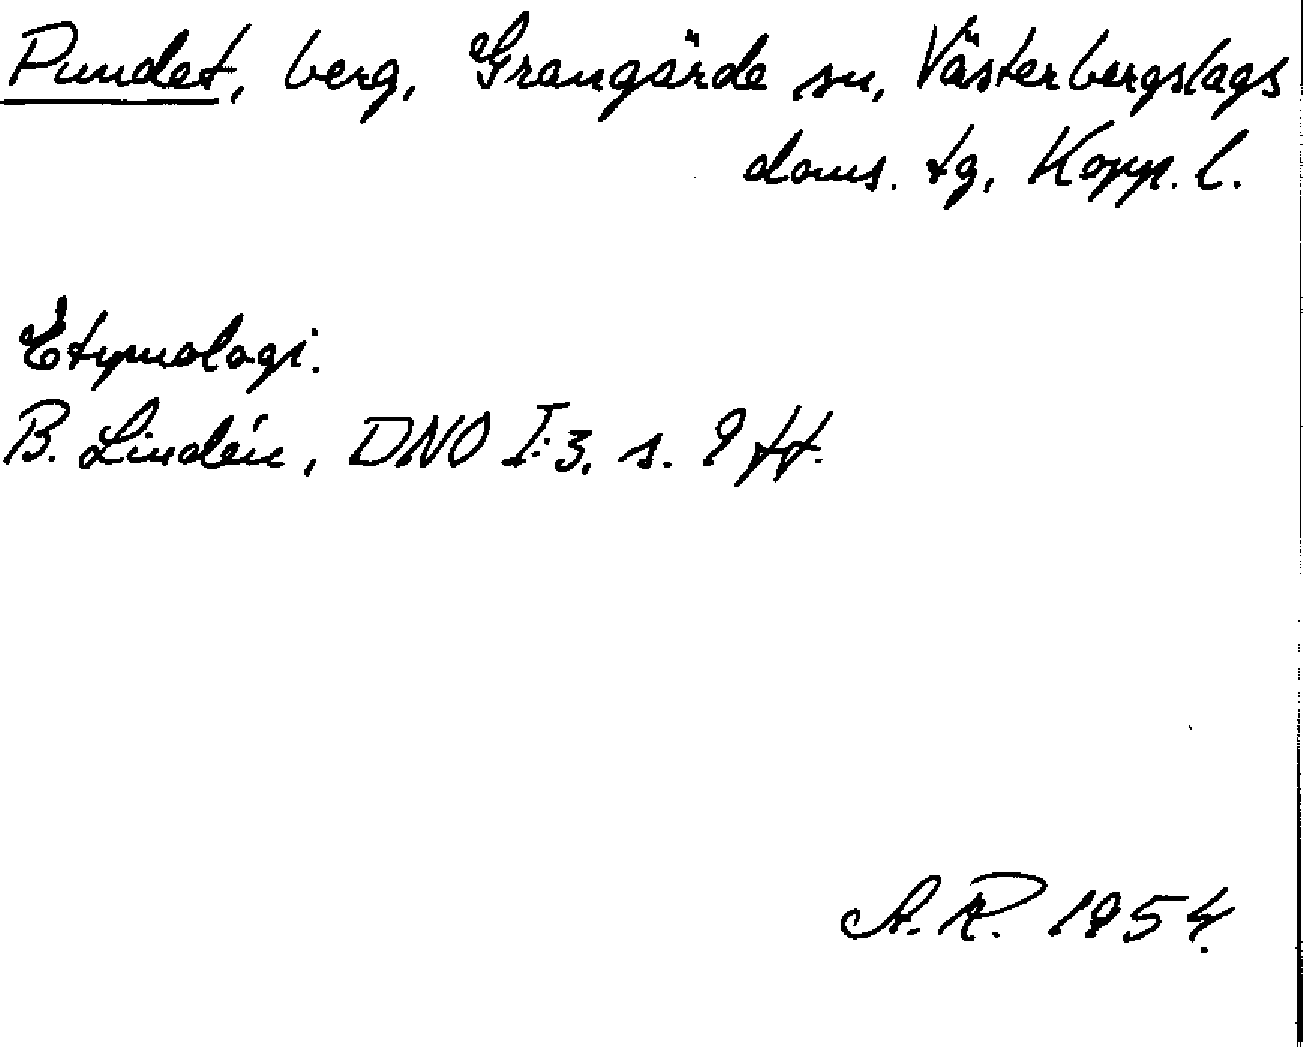 Pundet, berg, Grangärde sn, Västerbergslags
doms. tg, Kopp. l.
Etymologi.
B. Lindén, DNO I:3, s. 9 ff.
A. R. 1954.